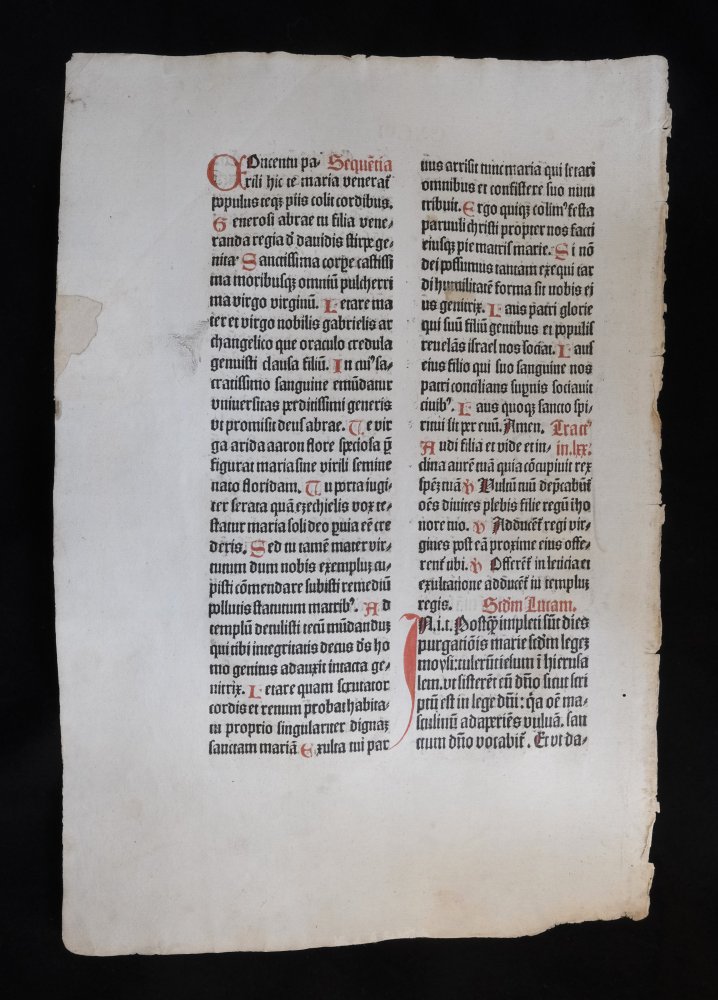 Concentu pa- Sequētia
rili hic te maria venerat᷑
populus teqꝫ piis colit cordibus.
Generosi abrae tu filia vene-
randa regia d̄ dauidis stirpe ge-
nita. Sanctissima corpe castissi
ma moribusqꝫ omniū pulcherri
ma virgo virginū. Letare ma
ter et virgo nobilis gabrielis ar
changelico que oraculo credula
genuisti clausa filiū. In cuiꝰ sa-
cratissimo sanguine emūdatur
vniuersitas perditissimi generis
vt promisit deus abrae. Te vir
ga arida aaron flore speciosa p̄
figurat maria sine virili semine
nato floridam. Tu porta iugi-
ter serata quā ezechielis vox te-
statur maria soli deo puia eē cre
deris. Sed tu tamē mater vir-
tutum dum nobis exempluꝫ cu-
pisti cōmendare subisti remediū
pollutis statutum matribꝰ. Ad
templū detulisti tecū mūdanduꝫ
qui tibi integritatis decus dꝰs ho
mo genitus adauxit intacta ge-
nitrix. Letare quam scrutator
cordis et renum probat habita-
tu proprio singulariter dignaꝫ
sanctam mariā Exulta cui par
uus arrisit tunc maria qui letari
omnibus et consistere suo nutu
tribuit. Ergo quiqꝫ colimꝰ festa
paruuli christi propter nos facti
eiusqꝫ pie matris marie. Si nō
dei possumus tantam exequi tar
di humilitatē forma sit nobis ei
us genitrix. Laus patri glorie
qui suū filiū gentibus et populis
reuelās israel nos sociat. Laus
eius filio qui suo sanguine nos
patri concilians supnis sociauit
ciuibꝰ. Laus quoqꝫ sancto spi-
ritui sit per euū. Amen. Tractꝰ
Audi filia et vide et in- in.lxx.
clina aurē tuā quia cōcupiuit rex
spēꝫ tuā ℣ Vultū tuū dep̄cabūt᷑
oēs diuites plebis filie regū ī ho
nore tuo. ℣ Adducēt᷑ regi vir-
gines post eā proxime eius offe-
rent᷑ tibi. ℣ Offerēt᷑ in leticia et
exultatione adducēt᷑ in templuꝫ
regis. Scdm Lucam.
IN.i.t. Postqꝫ impleti sūt dies
purgatiōis marie scdm legeꝫ
moysi: tulerūt iesum ī hierusa
lem. vt sisterēt eū dn̄o sicut scri
ptū est in lege dn̄i: q̄a oē ma-
sculinū adaperiēs vuluā. san
ctum dn̄o vocabit᷑. Et vt da-